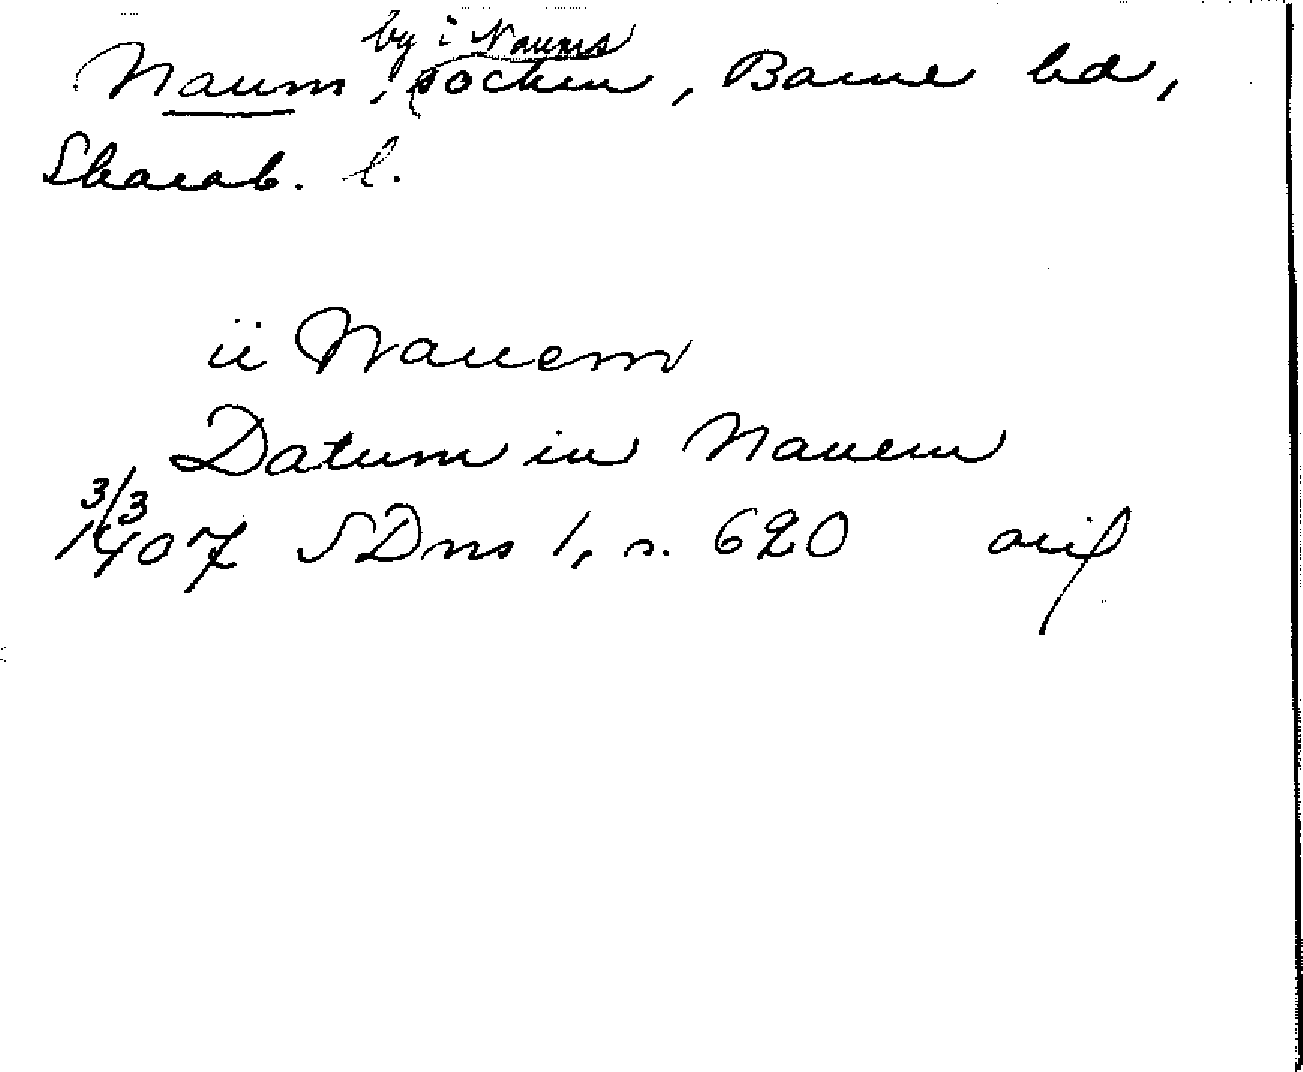 by i Naums
Naum, socken, Barne hd,
Skarab. l.
ii Nauem
Datum in Nauem
3/3
1407 SDns 1, s. 620 avs